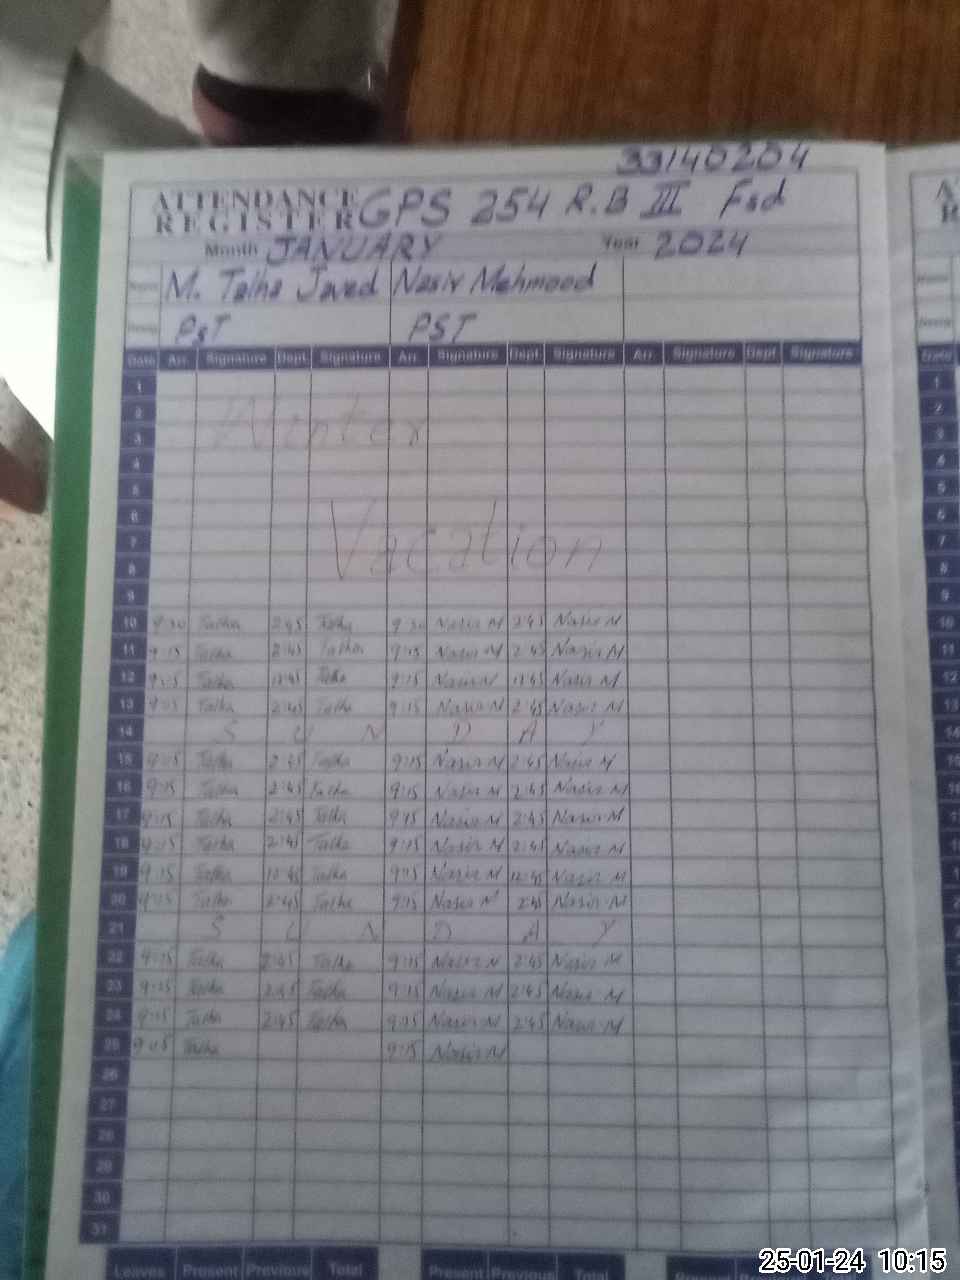 33140204
ATTENDANCE
REGISTER GPS 254 R.B III Fsd
Month JANUARY Year 2024
Name M. Talha Javed Nasir Mehmood
PST PST
Date Arr. Signature Dept. Signature Arr. Signature Dept. Signature Arr. Signature Dept. Signature
1
2
3 Winter
4
5
6
7 Vacation
8
9
10 9:30 Talha 2:45 Talha 9:30 Nasir M 2:45 Nasir M
11 9:15 Talha 2:45 Talha 9:15 Nasir M 2:45 Nasir M
12 9:15 Talha 12:45 Talha 9:15 Nasir M 12:45 Nasir M
13 9:15 Talha 2:45 Talha 9:15 Nasir M 2:45 Nasir M
14 S U N D A Y
15 9:15 Talha 2:45 Talha 9:15 Nasir M 2:45 Nasir M
16 9:15 Talha 2:45 Talha 9:15 Nasir M 2:45 Nasir M
17 9:15 Talha 2:45 Talha 9:15 Nasir M 2:45 Nasir M
18 9:15 Talha 2:45 Talha 9:15 Nasir M 2:45 Nasir M
19 9:15 Talha 12:45 Talha 9:15 Nasir M 12:45 Nasir M
20 9:15 Talha 2:45 Talha 9:15 Nasir M 2:45 Nasir M
21 S U N D A Y
22 9:15 Talha 2:45 Talha 9:15 Nasir M 2:45 Nasir M
23 9:15 Talha 2:45 Talha 9:15 Nasir M 2:45 Nasir M
24 9:15 Talha 2:45 Talha 9:15 Nasir M 2:45 Nasir M
25 9:05 Talha 9:15 Nasir M
26
27
28
29
30
31
Leaves Present Previous Total Present Previous Total
25-01-24 10:15